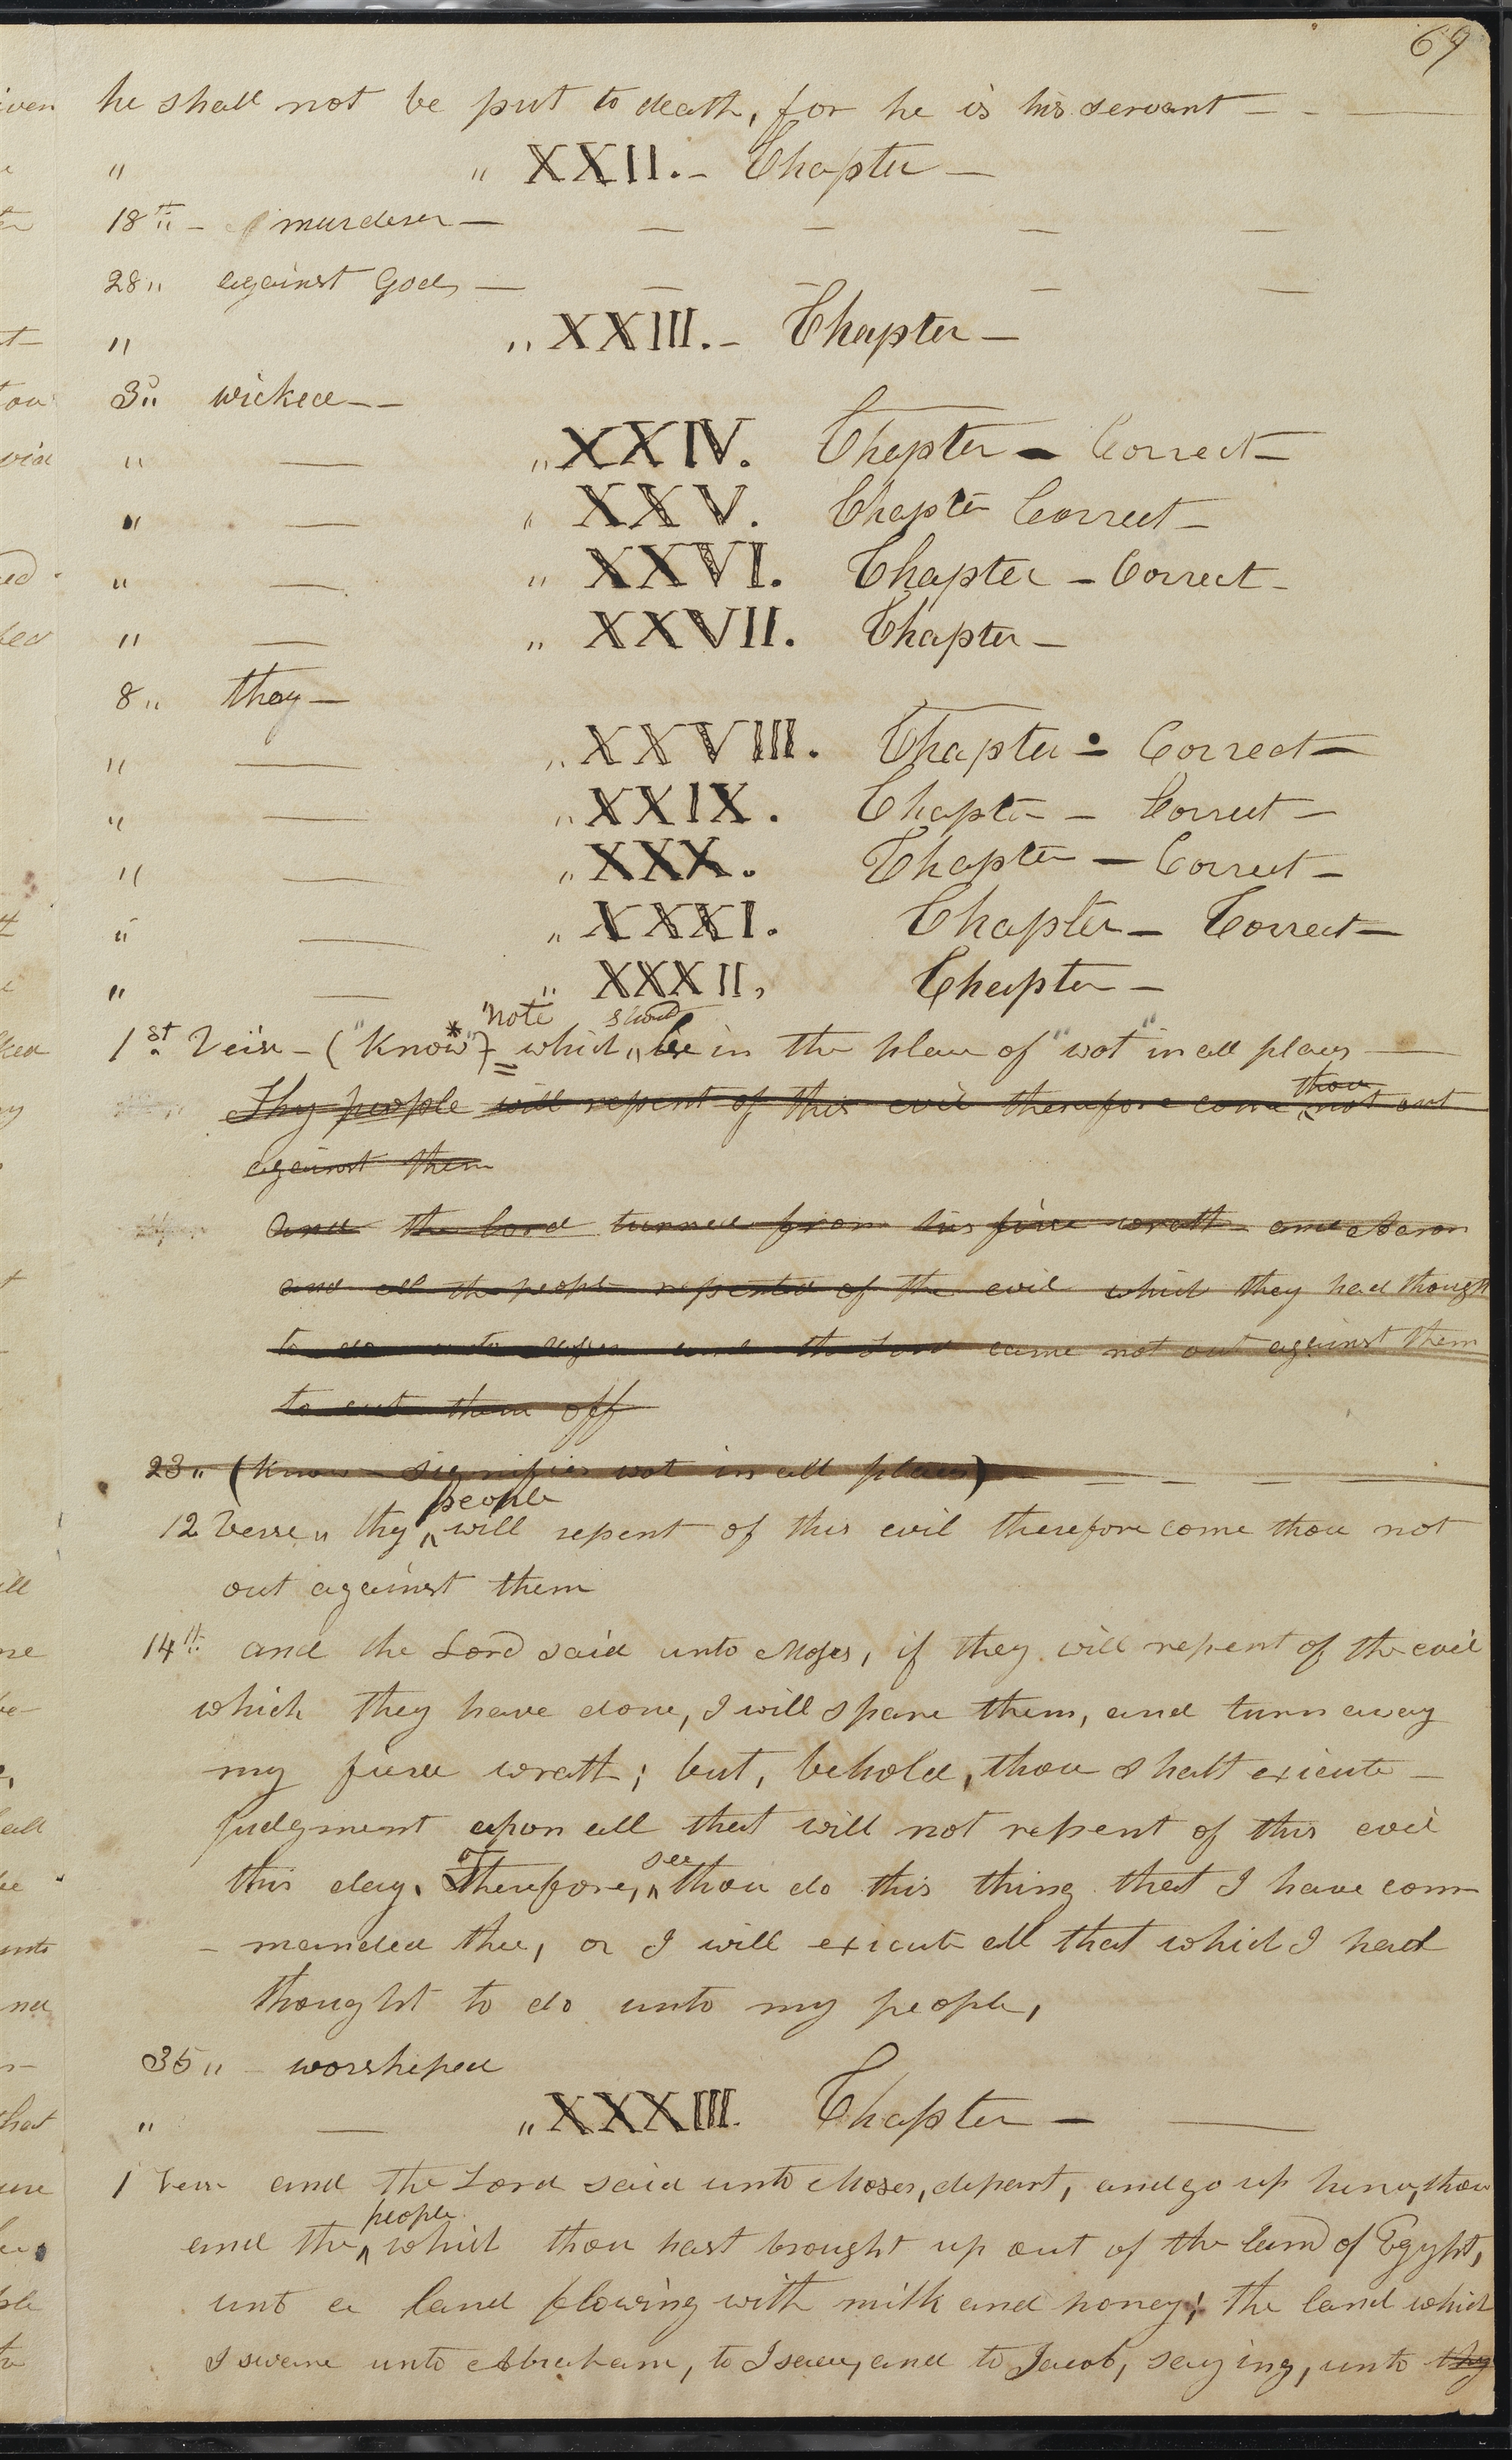 69
he shall not be put to death, for he is his servant — - —
" " XXII. - Chapter —
18th " - murderer — — — — —
28 " against God, — — — — —
" " XXIII. - Chapter —
3d " wicked — —
" — " XXIV. Chapter — Correct —
" — " XXV. Chapter Correct —
" — " XXVI. Chapter — Correct —
" — " XXVII. Chapter —
8 " they —
" — " XXVIII. Chapter — Correct —
" — " XXIX. Chapter — Correct —
" — " XXX. Chapter — Correct —
" — " XXXI. Chapter — Correct —
" — " XXXII, Chapter —
"note should
1st Veirse — ("Know"*) = which " be in the place of "wot" in all places —
thou
Thy people will repent of this evil therefore come ^ not out
against them
And the Lord turned from his firce wrath and Aaron
and all the people repented of the evil which they had thought
to do unto Moses and the Lord came not out against them
to cut them off
23 " (Know — signifies wot in all places) — — — —
people
12 Verse " thy ^ will repent of this evil therefore come thou not
out against them
14th and the Lord said unto Moses, if they will repent of the evil
which they have done, I will spare them, and turn away
my firce wrath; but, behold, thou shalt exicute —
judgment upon all that will not repent of this evil
see
this day. Therefore, ^ thou do this thing that I have com
- manded thee, or I will exicute all that which I had
thought to do unto my people,
35 " - worshiped
" — " XXXIII. Chapter — —
1 Verse and the Lord said unto Moses, depart, and go up hence, thou
people
and the ^ which thou hast brought up out of the land of Egypt,
unto a land flowing with milk and honey; the land which
I sware unto Abraham, to Isaac, and to Jacob, saying, unto thy